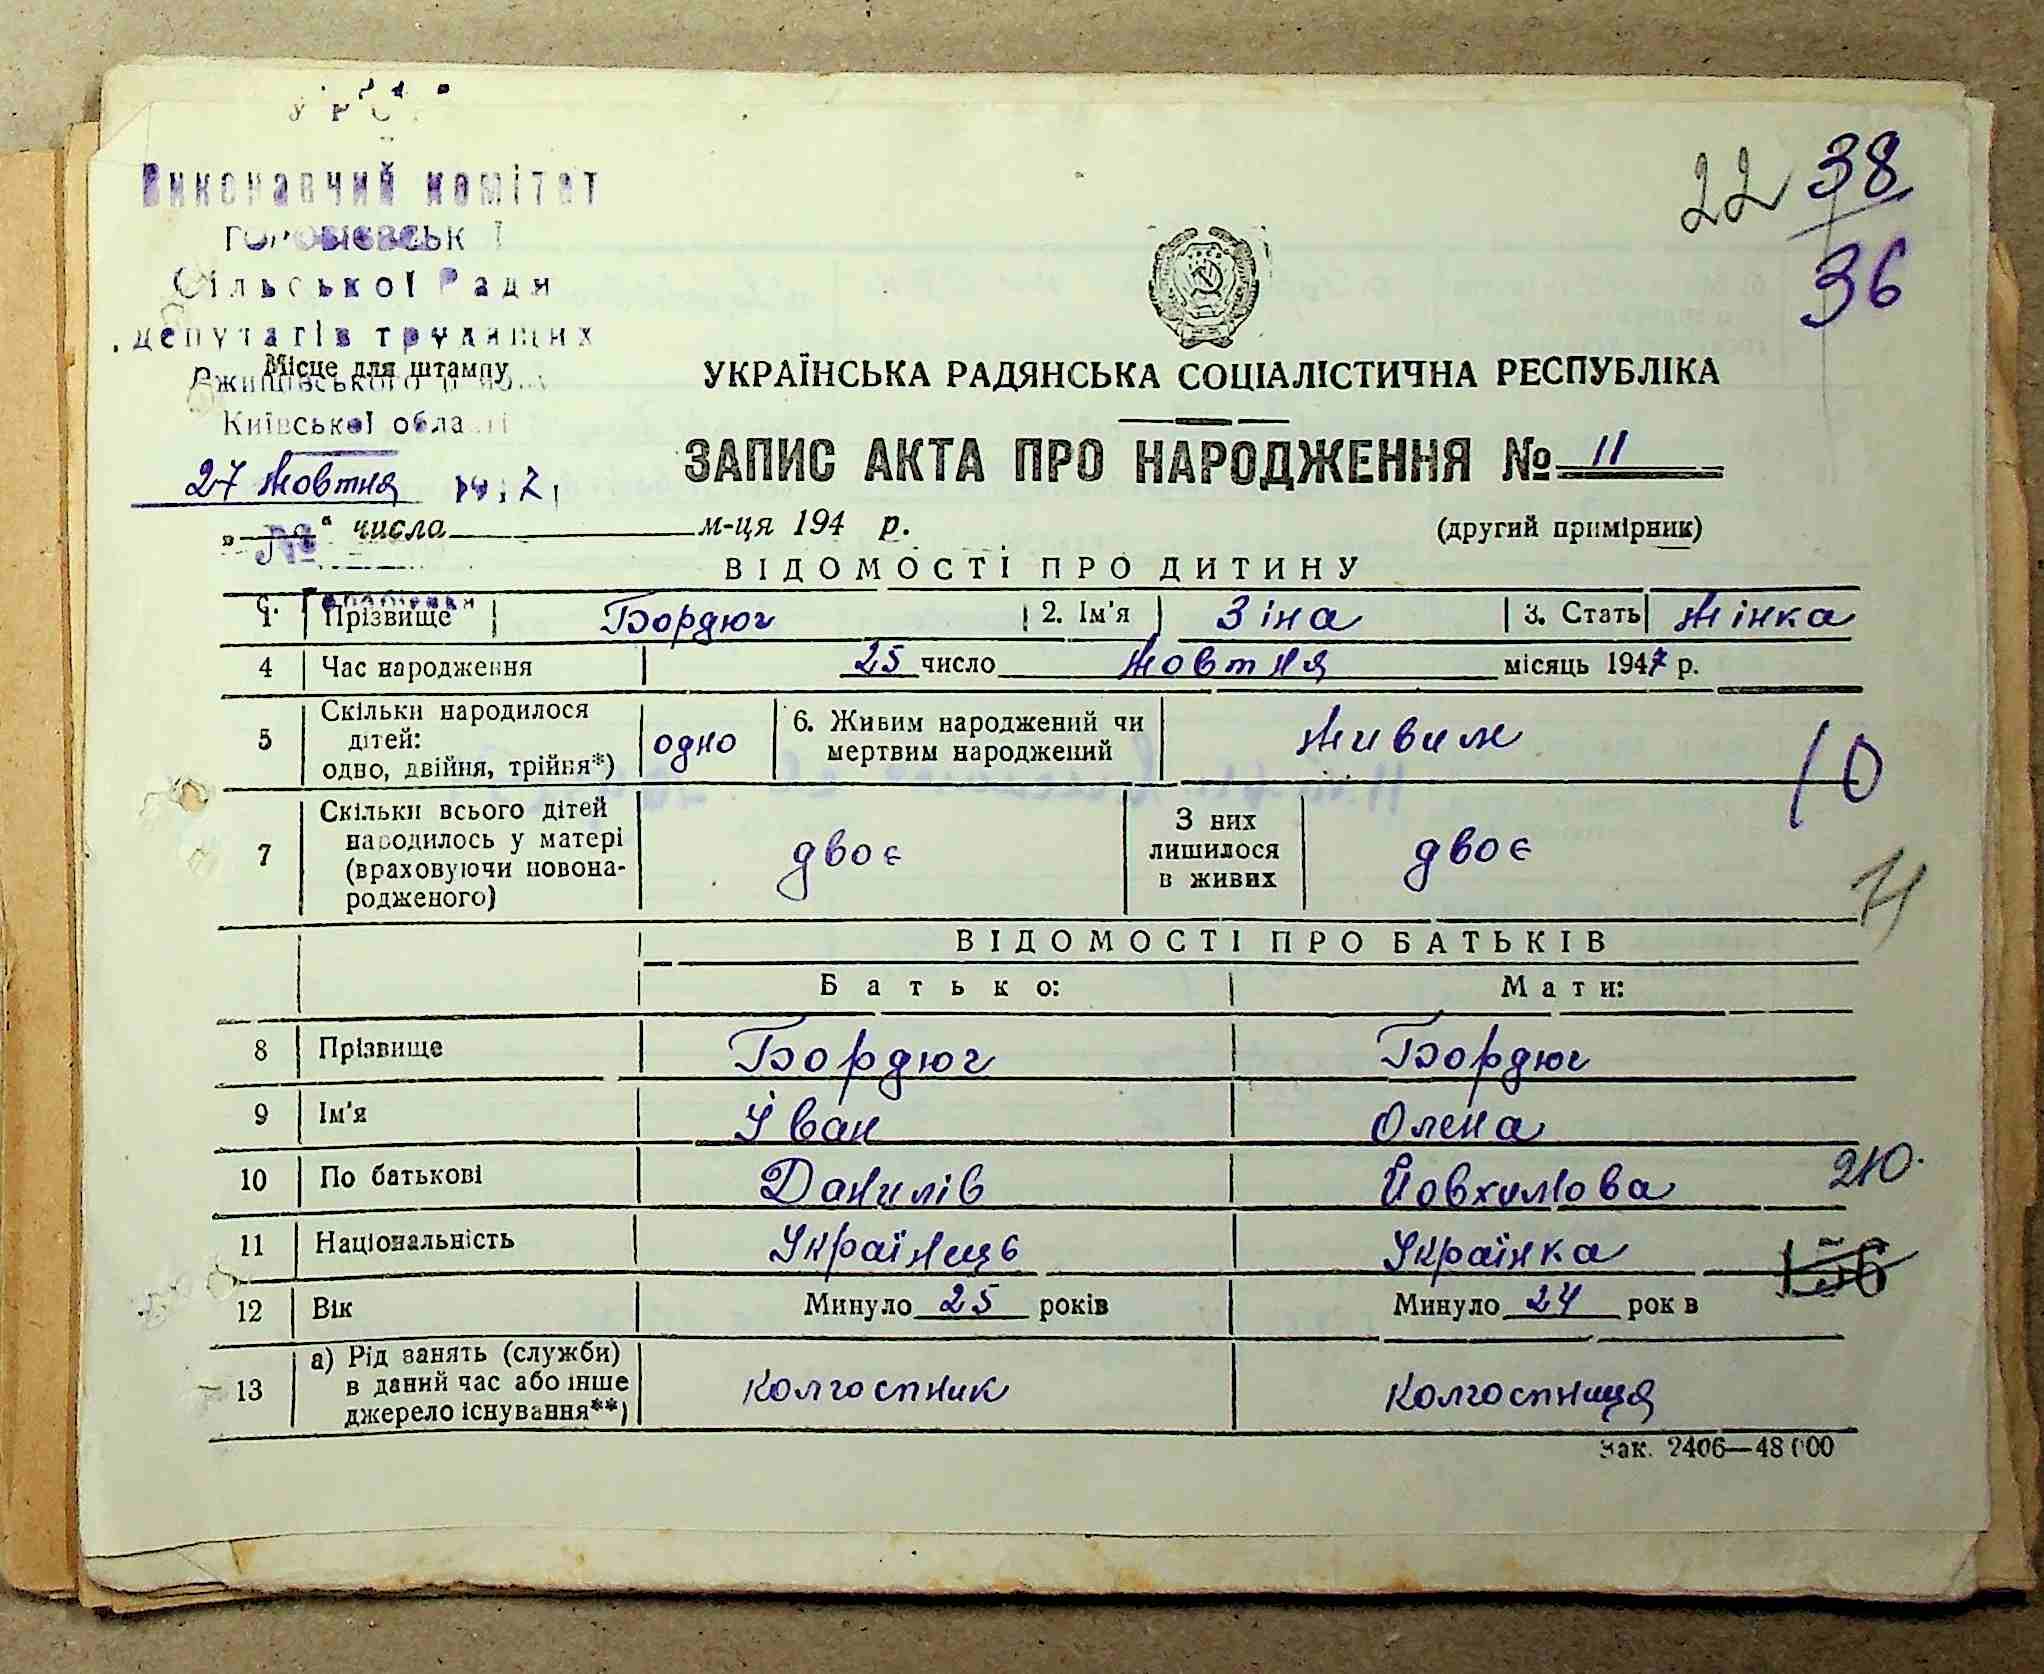 УРС
Виконавчий комітет
Сільської Ради
депутатів трудящих
Місце для штампу
Київської області
27 жовтня
№
22 38
36
УКРАЇНСЬКА РАДЯНСЬКА СОЦІАЛІСТИЧНА РЕСПУБЛІКА
ЗАПИС АКТА ПРО НАРОДЖЕННЯ № 11
„ “ числа м-ця 194 р. (другий примірник)
ВІДОМОСТІ ПРО ДИТИНУ
1 Прізвище Бордюг 2. Ім'я Зіна 3. Стать Жінка
4 Час народження 25 число жовтня місяць 1947 р.
5 Скільки народилося дітей: одно, двійня, трійня*) одно 6. Живим народжений чи мертвим народжений живим
10
7 Скільки всього дітей народилось у матері (враховуючи новонародженого) двоє З них лишилося в живих двоє
ВІДОМОСТІ ПРО БАТЬКІВ
Батько: Мати:
8 Прізвище Бордюг Бордюг
9 Ім'я Іван Олена
10 По батькові Данилів Йовхимова
11 Національність Українець Українка
156
12 Вік Минуло 25 років Минуло 24 рок в
13 а) Рід занять (служби) в даний час або інше джерело існування**) колгоспник колгоспниця
Зак. 2406—48 000